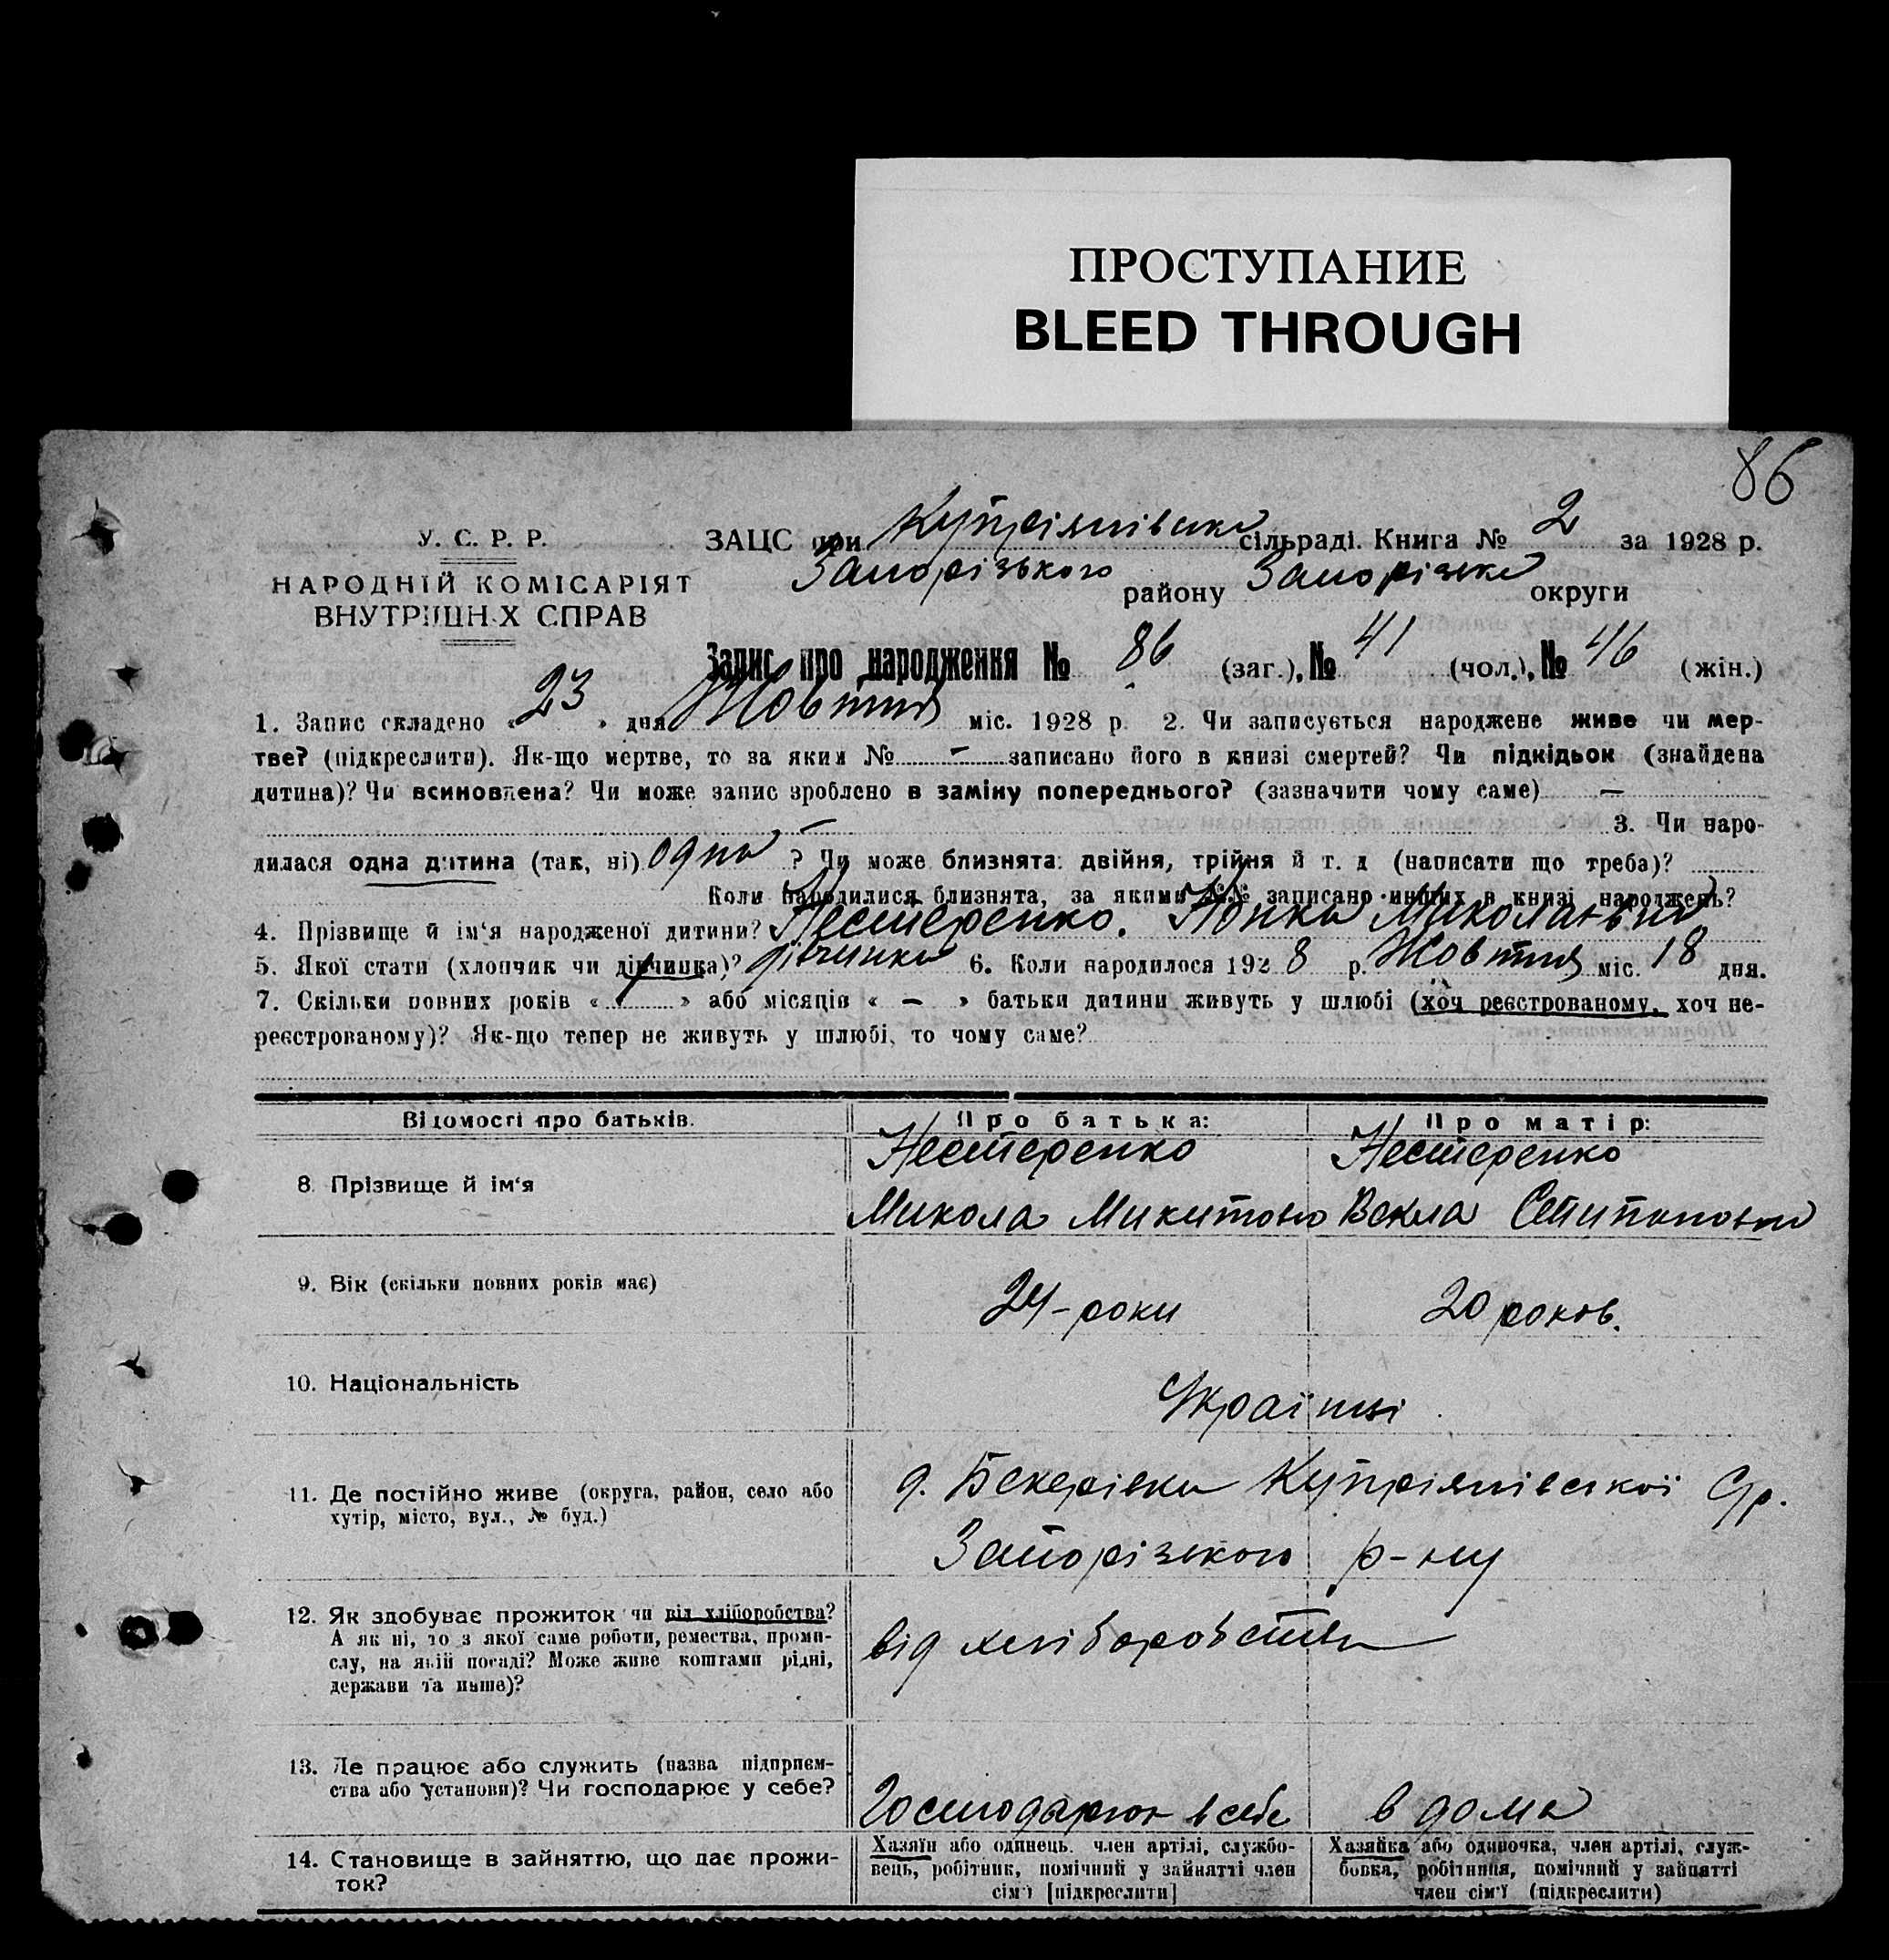 ПРОСТУПАНИЕ
BLEED THROUGH
86
У. С. Р. Р.
НАРОДНІЙ КОМІСАРІЯТ
ВНУТРІШН.Х СПРАВ
ЗАЦС при Купріянівська сільраді. Книга № 2 за 1928 р.
Запорізького району Запорізька округи
Запис про народження № 86 (заг.), № 41 (чол.), № 46 (жін.)
1. Запис складено « 23 » дня Жовтня міс. 1928 р. 2. Чи записується народжене живе чи мер-
тве? (підкреслити). Як-що мертве, то за яким № — записано його в книзі смертей? Чи підкідьок (знайдена
дитина)? Чи всиновлена? Чи може запис зроблено в заміну попереднього? (зазначити чому саме) —
— 3. Чи наро-
дилася одна дитина (так, ні) одна ? Чи може близнята: двійня, трійня й т. д (написати що треба)?
Коли народилися близнята, за якими №№ записано инших в книзі народжень?
4. Прізвище й ім'я народженої дитини? Нестеренко. Миколаівна
5. Якої стати (хлопчик чи дівчинка)? дівчинка 6. Коли народилося 1928 р. Жовтня міс. 18 дня.
7. Скільки повних років « » або місяців « — » батьки дитини живуть у шлюбі (хоч реєстрованому, хоч не-
реєстрованому)? Як-що тепер не живуть у шлюбі, то чому саме?
Відомості про батьків.
Про батька:
Про матір:
8. Прізвище й ім'я
Нестеренко
Микола Микитович
Нестеренко
Векла
9. Вік (скільки повних років має)
24 - роки
20 роков.
10. Національність
Українці
11. Де постійно живе (округа, район, село або
хутір, місто, вул., № буд.)
д. Бекерівка Купріянівської Ср.
Запорізького р-ну
12. Як здобуває прожиток чи від хліборобства?
А як ні, то з якої саме роботи, ремества, проми-
слу, на якій посаді? Може живе коштами рідні,
держави та инше)?
від хліборобства
13. Де працює або служить (назва підприєм-
ства або установи)? Чи господарює у себе?
Господарют в себе
в дома
14. Становище в зайняттю, що дає прожи-
ток?
Хазяїн або одинець, член артілі, службо-
вець, робітник, помічний у зайнятті член
сім'ї [підкреслити]
Хазяйка або одиночка, член артілі, служ-
бовка, робітниця, помічний у зайнятті
член сім'ї (підкреслити)